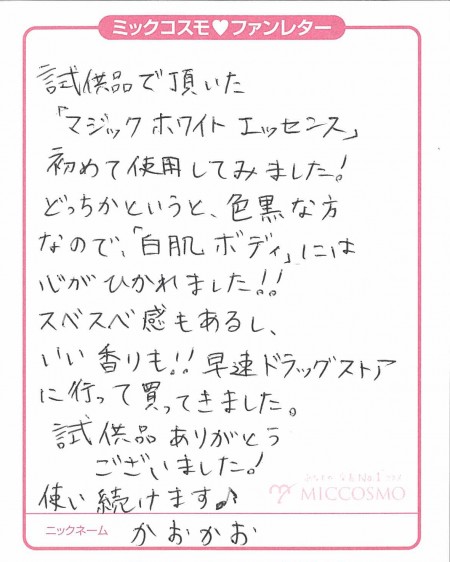 ミックコスモ♥ファンレター
試供品で頂いた
「マジックホワイトエッセンス」
初めて使用してみました!
どっちかというと、色黒な方
なので、「白肌ボディ」には
心がひかれました!!
スベスベ感もあるし、
いい香りも!!早速ドラッグストア
に行って買ってきました。
試供品ありがとう
ございました!
使い続けます♪
No.1
MICCOSMO
ニックネーム かおかお